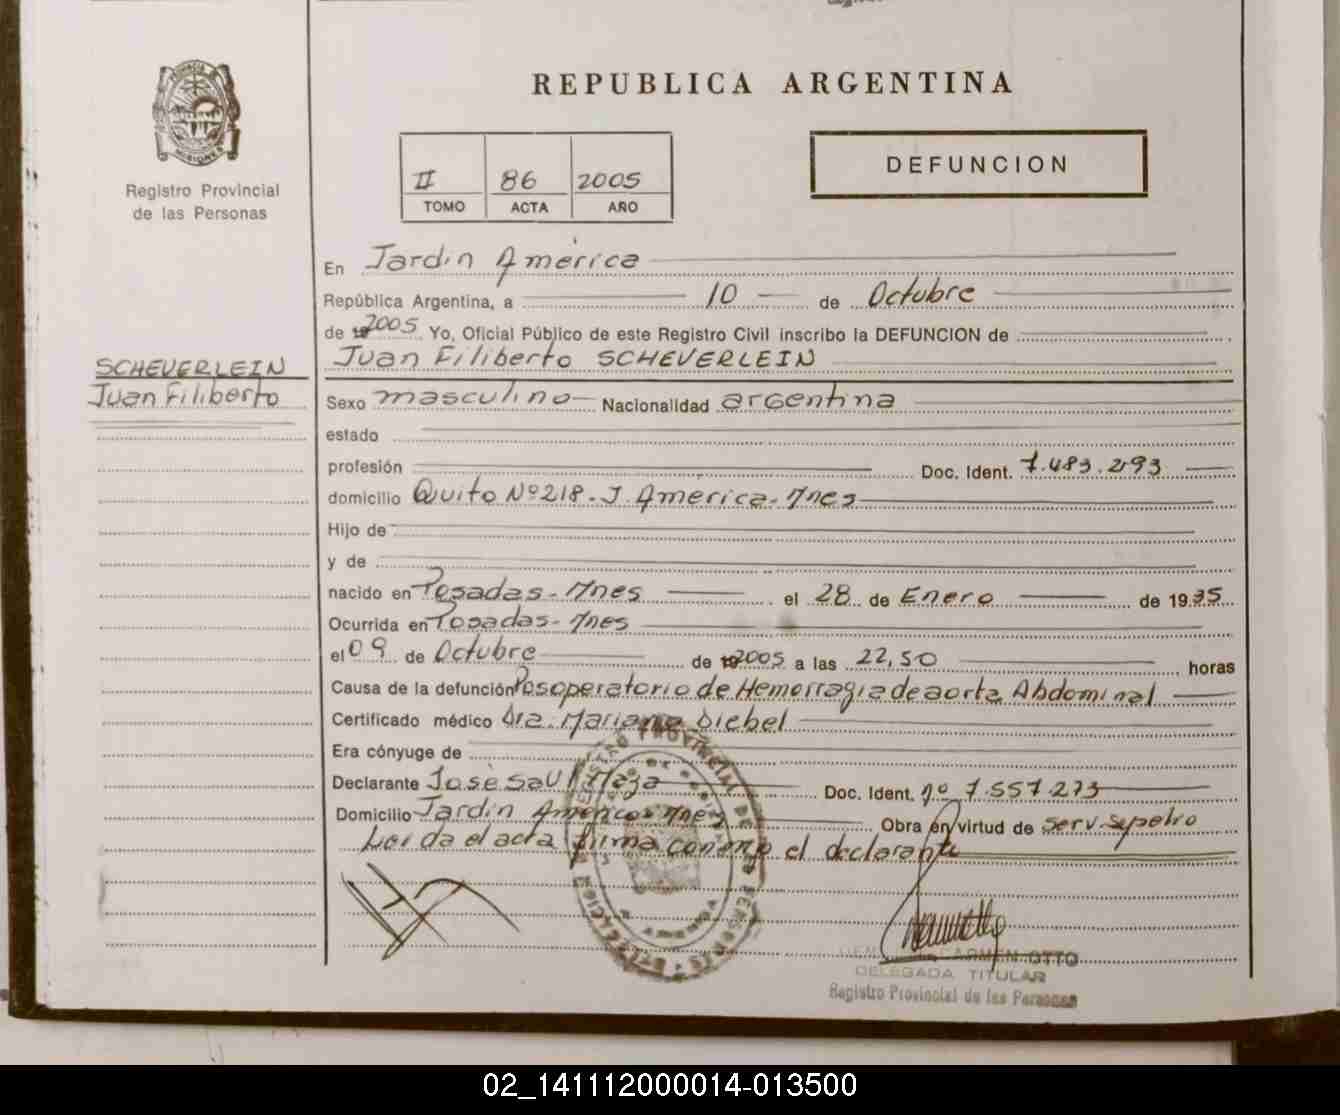 REPUBLICA ARGENTINA
MISIONES
Registro Provincial
de las Personas
II 86 2005
TOMO ACTA AÑO
DEFUNCION
En Jardin América
República Argentina, a 10 de Octubre
de 2005 Yo, Oficial Público de este Registro Civil inscribo la DEFUNCION de
Juan Filiberto SCHEVERLEIN
SCHEVERLEIN
Juan Filiberto
Sexo masculino Nacionalidad argentina
estado
profesión Doc. Ident. 7.483.293
domicilio Quito Nº 218 - J. América - Mnes
Hijo de
y de
nacido en Posadas - Mnes el 28 de Enero de 1935
Ocurrida en Posadas - Mnes
el 09 de Octubre de 2005 a las 22,50 horas
Causa de la defunción Posoperatorio de Hemorragia de aorta Abdominal
Certificado médico Dra. Mariana Diebel
Era cónyuge de
Declarante José Saul Maza Doc. Ident. nº 7.557.273
Domicilio Jardin América - Mnes Obra en virtud de Serv. Sepelio
Leida el acta firma conmigo el declarante
CARMEN OTTO
DELEGADA TITULAR
Registro Provincial de las Personas
02_141112000014-013500